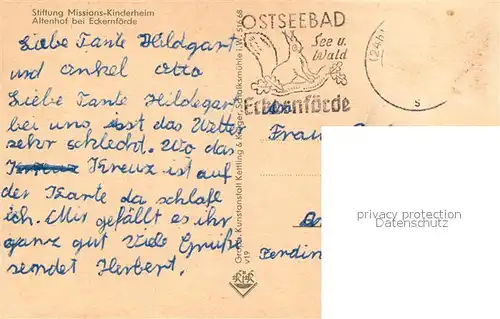 Stiftung Missions-Kinderheim
Altenhof bei Eckernförde
Liebe Tante Hildgart
und onkel otto
Liebe Tante Hildegart
bei uns isst das Wetter
sehr schlecht. Wo das
Kreuz ist auf
der Karte da schlafe
ich. Mir gefällt es ihr
ganz gut Viele Grüße
sendet Herbert.
Kunstanstalt Kettling & Krüger, Schalksmühle i.W. 516 68
v19
K&K
OSTSEEBAD
See u.
Wald
Eckernförde
(24b)
s
Frau
Ferdin
privacy protection
Datenschutz